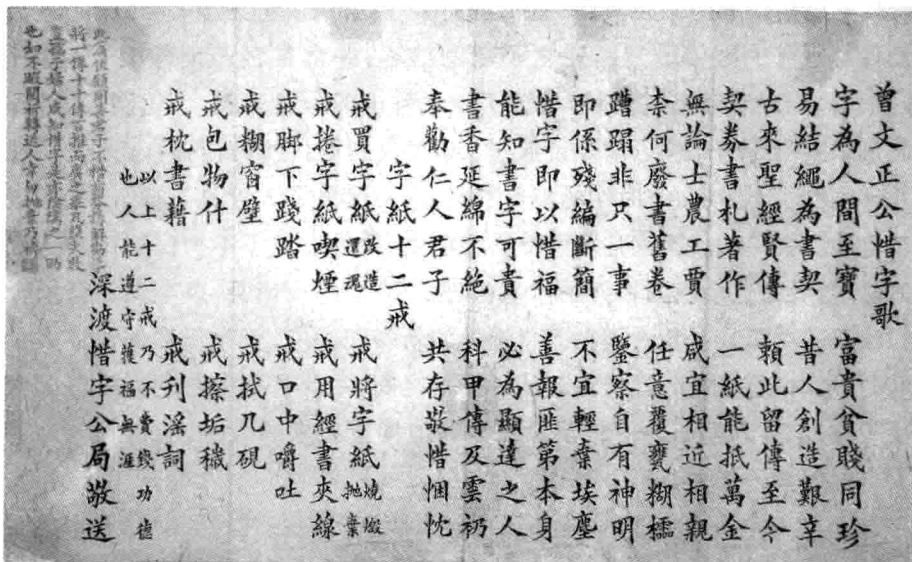 曾文正公惜字歌
字為人間至寶 富貴貧賤同珍
易結繩為書契 昔人創造艱辛
古來聖經賢傳 賴此留傳至今
契券書札著作 一紙能抵萬金
無論士農工賈 咸宜相近相親
柰何廢書舊卷 任意覆甕糊檽
蹧蹋非只一事 鑒察自有神明
即係殘編斷簡 不宜輕棄埃塵
惜字即以惜福 善報匪第本身
能知書字可貴 必為顯達之人
書香延綿不絕 科甲傳及雲礽
奉勸仁人君子 共存敬惜悃忱
字紙十二戒
戒買字紙改造還魂 戒將字紙燒燬拋棄
戒捲字紙喫煙 戒用經書夾線
戒脚下踐踏 戒口中嚼吐
戒糊窗壁 戒拭几硯
戒包物什 戒擦垢穢
戒枕書籍 戒刊淫詞
以上十二戒乃不費錢功德
也人能遵守獲福無涯
深渡惜字公局敬送